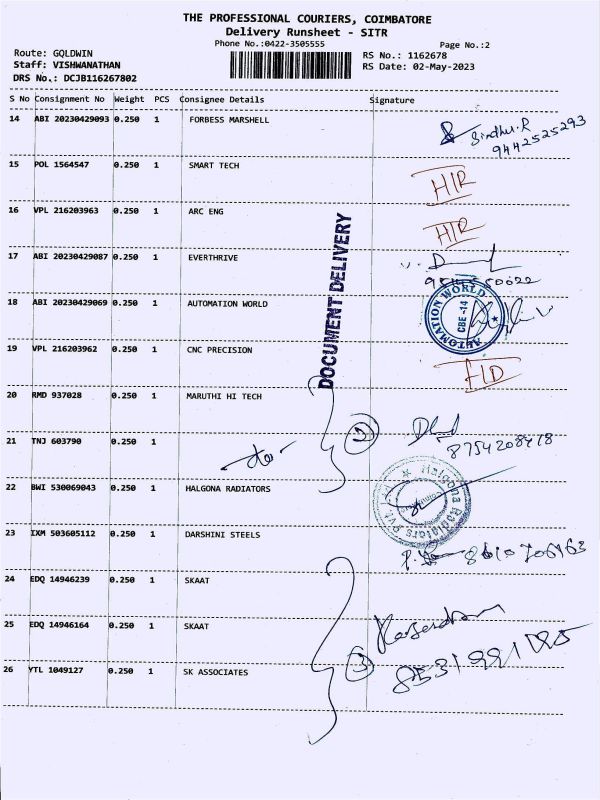 THE PROFESSIONAL COURIERS, COIMBATORE
Delivery Runsheet - SITR
Phone No.:0422-3505555
Page No.:2
Route: GOLDWIN
RS No.: 1162678
Staff: VISHWANATHAN
RS Date: 02-May-2023
DRS No.: DCJB116267802
S No Consignment No Weight PCS Consignee Details Signature
14 ABI 20230429093 0.250 1 FORBESS MARSHELL
Sindhu.R
9442525293
15 POL 1564547 0.250 1 SMART TECH
H/R
16 VPL 216203963 0.250 1 ARC ENG
H/R
17 ABI 20230429087 0.250 1 EVERTHRIVE
DOCUMENT DELIVERY
18 ABI 20230429069 0.250 1 AUTOMATION WORLD
AUTOMATION WORLD
CBE-14
19 VPL 216203962 0.250 1 CNC PRECISION
20 RMD 937028 0.250 1 MARUTHI HI TECH
21 TNJ 603790 0.250 1
8754208478
22 BWI 530069043 0.250 1 HALGONA RADIATORS
Halgona Radiators Pvt. Ltd.
23 IXM 503605112 0.250 1 DARSHINI STEELS
8610706163
24 EDQ 14946239 0.250 1 SKAAT
25 EDQ 14946164 0.250 1 SKAAT
3
26 YTL 1049127 0.250 1 SK ASSOCIATES